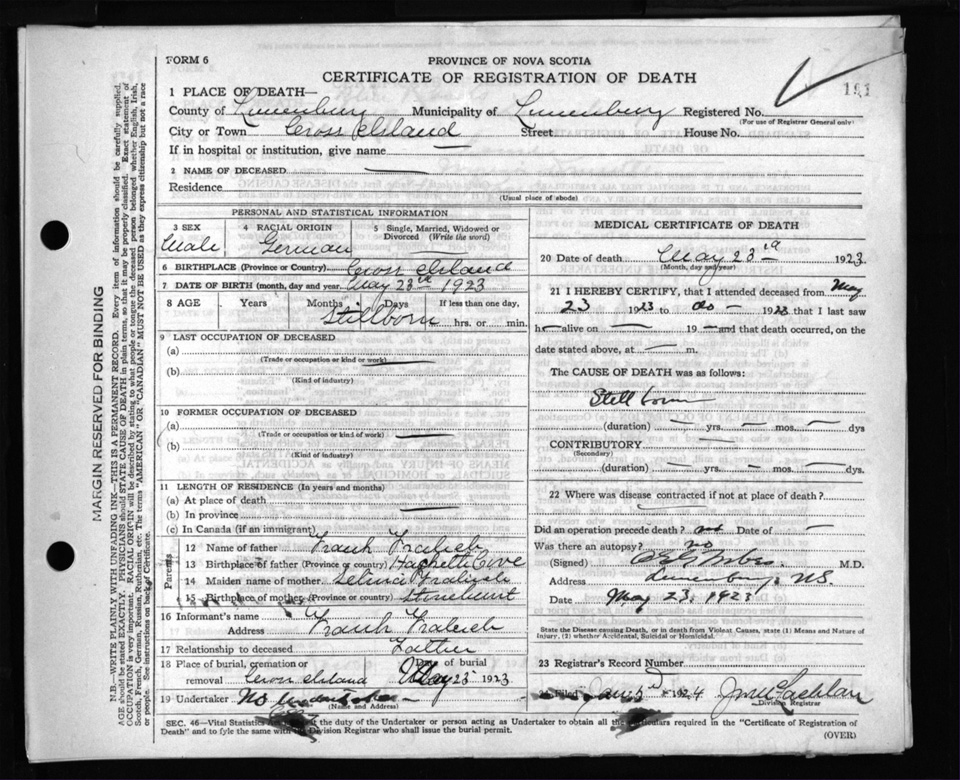 FORM 6
PROVINCE OF NOVA SCOTIA
CERTIFICATE OF REGISTRATION OF DEATH
181
1 PLACE OF DEATH—
County of Lunenburg Municipality of Lunenburg Registered No.
(For use of Registrar General only)
City or Town Cross Island Street House No.
If in hospital or institution, give name —
2 NAME OF DECEASED —
Residence
(Usual place of abode)
PERSONAL AND STATISTICAL INFORMATION
3 SEX 4 RACIAL ORIGIN 5 Single, Married, Widowed or Divorced (Write the word)
Male German
6 BIRTHPLACE (Province or Country) Cross Island
7 DATE OF BIRTH (month, day and year) May 23rd 1923
8 AGE Years Months Days If less than one day,
Stillborn hrs. or min.
9 LAST OCCUPATION OF DECEASED
(a)
(Trade or occupation or kind of work)
(b)
(Kind of industry)
10 FORMER OCCUPATION OF DECEASED
(a)
(Trade or occupation or kind of work)
(b)
(Kind of industry)
11 LENGTH OF RESIDENCE (In years and months)
(a) At place of death
(b) In province
(c) In Canada (if an immigrant)
Parents
12 Name of father Frank
13 Birthplace of father (Province or country) Cove
14 Maiden name of mother
15 Birthplace of mother (Province or country) Stonehurst
16 Informant's name Frank
Address
17 Relationship to deceased Father
18 Place of burial, cremation or removal Cross Island Date of burial May 23rd 1923
19 Undertaker No Undertaker
(Name and Address)
MEDICAL CERTIFICATE OF DEATH
20 Date of death May 23rd 1923
(Month, day and year)
21 I HEREBY CERTIFY, that I attended deceased from May
23 1923 to do — 1923 that I last saw
h— alive on — 19 — and that death occurred, on
date stated above, at — m.
The CAUSE OF DEATH was as follows:
Still born
(duration) — yrs. — mos. — dys
CONTRIBUTORY —
(Secondary)
(duration) — yrs. — mos. — dys.
22 Where was disease contracted if not at place of death?
Did an operation precede death? no Date of —
Was there an autopsy? no
(Signed) M.D.
Address Lunenburg, N.S.
Date May 23, 1923
State the Disease causing Death, or in death from Violent Causes, state (1) Means and Nature of
Injury, (2) whether Accidental, Suicidal or Homicidal.
23 Registrar's Record Number
Filed 1924 McLachlan
Division Registrar
SEC. 46—Vital Statistics the duty of the Undertaker or person acting as Undertaker to obtain all the particulars required in the "Certificate of Registration of
Death" and to fyle the same with Division Registrar who shall issue the burial permit.
(OVER)
MARGIN RESERVED FOR BINDING
N.B.—WRITE PLAINLY WITH UNFADING INK—THIS IS A PERMANENT RECORD. Every item of information should be carefully supplied.
AGE should be stated EXACTLY. PHYSICIANS should STATE CAUSE OF DEATH in plain terms, so that it may be properly classified. Exact statement of
OCCUPATION is very important. RACIAL ORIGIN will be described by stating to what people or tongue the deceased person belonged whether English, Irish,
Scotch, French, German, Russian, Ruthenian, etc. The terms "AMERICAN" OR "CANADIAN" MUST NOT BE USED as they express citizenship but not a race
or people. See instructions on back of Certificate.